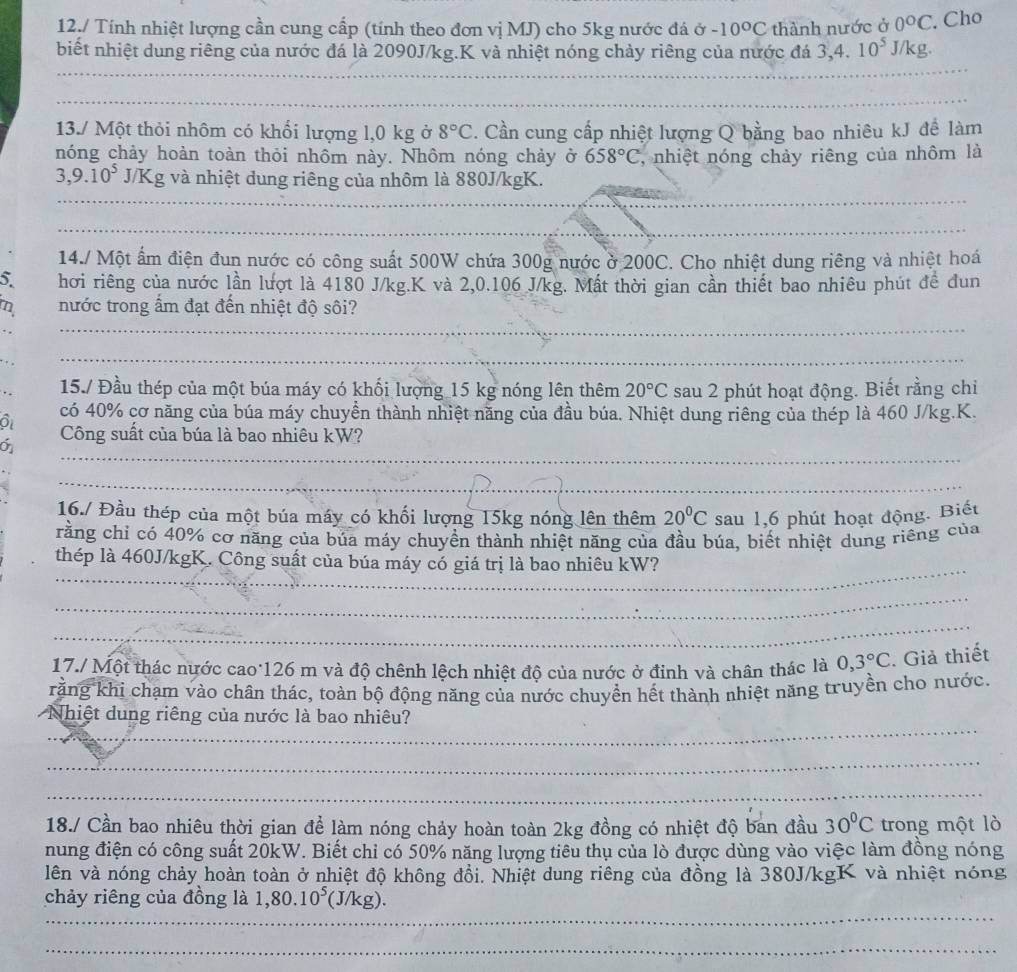 12./ Tính nhiệt lượng cần cung cấp (tính theo đơn vị MJ) cho 5kg nước đá ở -10⁰C thành nước ở 0⁰C. Cho
biết nhiệt dung riêng của nước đá là 2090J/kg.K và nhiệt nóng chảy riêng của nước đá 3,4. 10⁵ J/kg.
13./ Một thỏi nhôm có khối lượng 1,0 kg ở 8°C. Cần cung cấp nhiệt lượng Q bằng bao nhiêu kJ để làm
nóng chảy hoàn toàn thỏi nhôm này. Nhôm nóng chảy ở 658°C, nhiệt nóng chảy riêng của nhôm là
3,9.10⁵ J/Kg và nhiệt dung riêng của nhôm là 880J/kgK.
14./ Một ấm điện đun nước có công suất 500W chứa 300g nước ở 200C. Cho nhiệt dung riêng và nhiệt hoá
hơi riêng của nước lần lượt là 4180 J/kg.K và 2,0.106 J/kg. Mất thời gian cần thiết bao nhiêu phút để đun
nước trong ấm đạt đến nhiệt độ sôi?
15./ Đầu thép của một búa máy có khối lượng 15 kg nóng lên thêm 20°C sau 2 phút hoạt động. Biết rằng chỉ
có 40% cơ năng của búa máy chuyển thành nhiệt năng của đầu búa. Nhiệt dung riêng của thép là 460 J/kg.K.
Công suất của búa là bao nhiêu kW?
16./ Đầu thép của một búa máy có khối lượng 15kg nóng lên thêm 20⁰C sau 1,6 phút hoạt động. Biết
rằng chỉ có 40% cơ năng của búa máy chuyển thành nhiệt năng của đầu búa, biết nhiệt dung riêng của
thép là 460J/kgK. Công suất của búa máy có giá trị là bao nhiêu kW?
17./ Một thác nước cao 126 m và độ chênh lệch nhiệt độ của nước ở đỉnh và chân thác là 0,3°C. Giả thiết
rằng khi chạm vào chân thác, toàn bộ động năng của nước chuyển hết thành nhiệt năng truyền cho nước.
Nhiệt dung riêng của nước là bao nhiêu?
18./ Cần bao nhiêu thời gian để làm nóng chảy hoàn toàn 2kg đồng có nhiệt độ ban đầu 30⁰C trong một lò
nung điện có công suất 20kW. Biết chỉ có 50% năng lượng tiêu thụ của lò được dùng vào việc làm đồng nóng
lên và nóng chảy hoàn toàn ở nhiệt độ không đổi. Nhiệt dung riêng của đồng là 380J/kgK và nhiệt nóng
chảy riêng của đồng là 1,80.10⁵(J/kg).